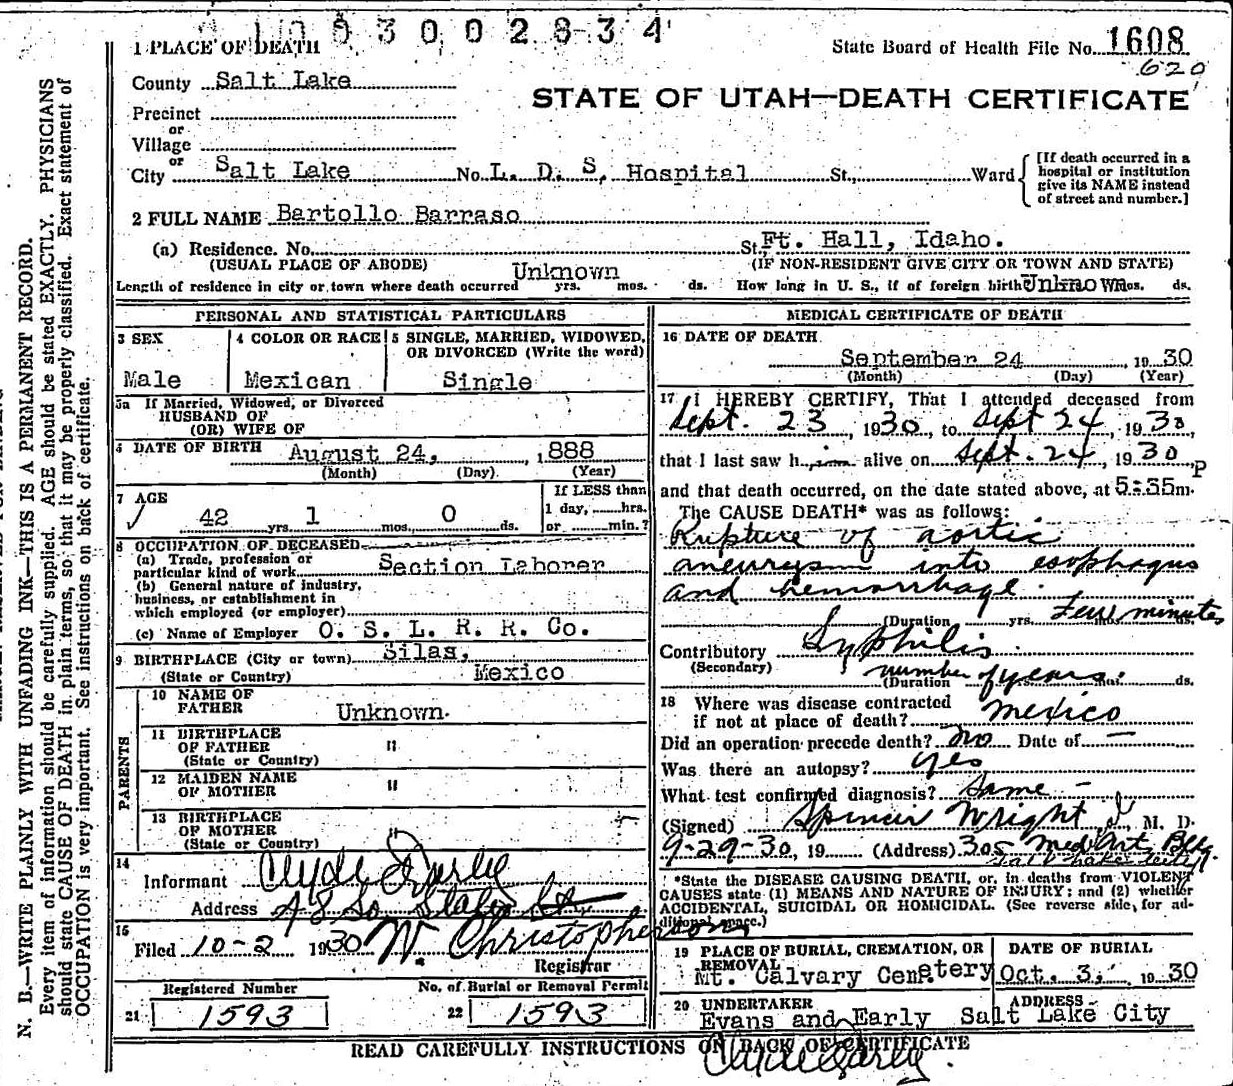 3 0 0 2 8 3 4
1 PLACE OF DEATH
State Board of Health File No. 1608
620
County Salt Lake
STATE OF UTAH—DEATH CERTIFICATE
Precinct
or
Village
or
City Salt Lake No. L. D. S. Hospital St., Ward
[If death occurred in a
hospital or institution
give its NAME instead
of street and number.]
2 FULL NAME Bartollo Barraso
(a) Residence. No. St. Ft. Hall, Idaho.
(USUAL PLACE OF ABODE) (IF NON-RESIDENT GIVE CITY OR TOWN AND STATE)
Length of residence in city or town where death occurred Unknown yrs. mos. ds. How long in U. S., if of foreign birth Unknown mos. ds.
PERSONAL AND STATISTICAL PARTICULARS
3 SEX
Male
4 COLOR OR RACE
Mexican
5 SINGLE, MARRIED, WIDOWED,
OR DIVORCED (Write the word)
Single
5a If Married, Widowed, or Divorced
HUSBAND OF
(OR) WIFE OF
6 DATE OF BIRTH August 24, 1888
(Month) (Day) (Year)
7 AGE
42 yrs. 1 mos. 0 ds.
If LESS than
1 day, hrs.
or min.?
8 OCCUPATION OF DECEASED
(a) Trade, profession or
particular kind of work Section Laborer
(b) General nature of industry,
business, or establishment in
which employed (or employer)
(c) Name of Employer O. S. L. R. R. Co.
9 BIRTHPLACE (City or town) Silas,
(State or Country) Mexico
PARENTS
10 NAME OF
FATHER Unknown.
11 BIRTHPLACE
OF FATHER "
(State or Country)
12 MAIDEN NAME
OF MOTHER "
13 BIRTHPLACE
OF MOTHER
(State or Country)
14
Informant Clyde Early
Address 48 So State St.
15
Filed 10-2 1930 W. Christopherson
Registrar
Registered Number
21 1593
No. of Burial or Removal Permit
22 1593
MEDICAL CERTIFICATE OF DEATH
16 DATE OF DEATH
September 24 1930
(Month) (Day) (Year)
17 I HEREBY CERTIFY, That I attended deceased from
Sept. 23, 1930, to Sept 24, 1930,
that I last saw him alive on Sept. 24, 1930
and that death occurred, on the date stated above, at 5:35 P m.
The CAUSE DEATH* was as follows:
Rupture of aortic
aneurysm into esophagus
and hemorrhage.
(Duration yrs. Few minutes ds.
Contributory Syphilis
(Secondary) number of years.
(Duration yrs. mos. ds.
18 Where was disease contracted
if not at place of death? Mexico
Did an operation precede death? No Date of —
Was there an autopsy? Yes
What test confirmed diagnosis? Same -
(Signed) Spencer Wright, M. D.
9-29-30, 19 (Address) 305 Med Art Bldg.
Salt Lake City
*State the DISEASE CAUSING DEATH, or, in deaths from VIOLENT
CAUSES state (1) MEANS AND NATURE OF INJURY; and (2) whether
ACCIDENTAL, SUICIDAL OR HOMICIDAL. (See reverse side, for ad-
ditional space.)
19 PLACE OF BURIAL, CREMATION, OR
REMOVAL
Mt. Calvary Cemetery
DATE OF BURIAL
Oct. 3, 1930
20 UNDERTAKER
Evans and Early
ADDRESS
Salt Lake City
Clyde Early
READ CAREFULLY INSTRUCTIONS ON BACK OF CERTIFICATE
N. B.—WRITE PLAINLY WITH UNFADING INK—THIS IS A PERMANENT RECORD.
Every item of information should be carefully supplied. AGE should be stated EXACTLY. PHYSICIANS
should state CAUSE OF DEATH in plain terms, so that it may be properly classified. Exact statement of
OCCUPATION is very important. See instructions on back of certificate.